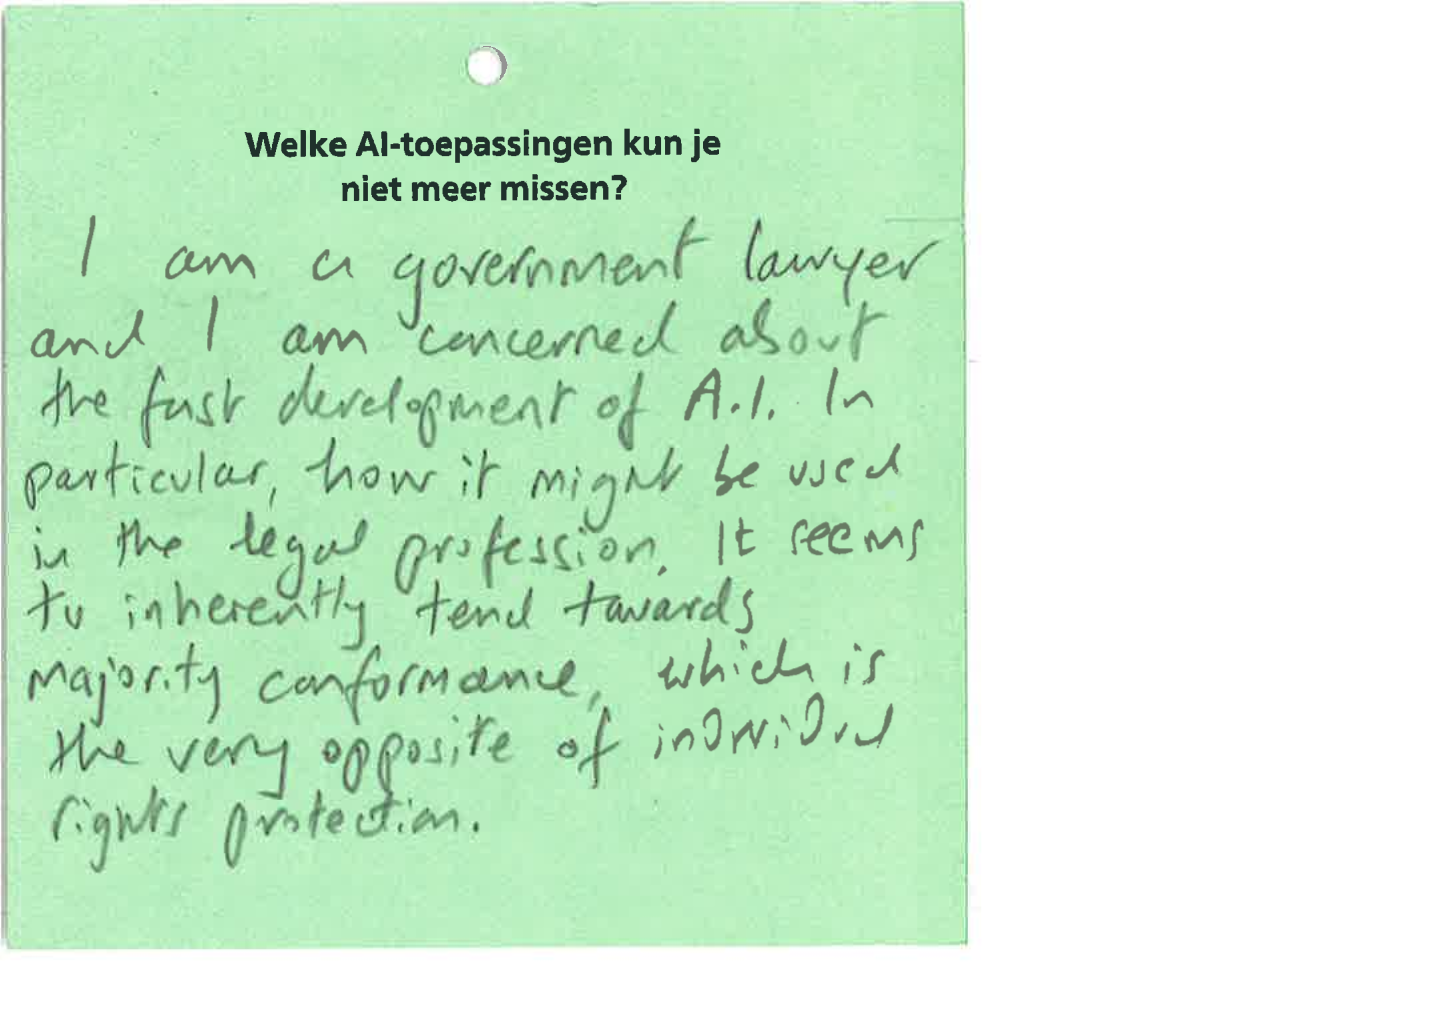 Welke AI-toepassingen kun je
niet meer missen?
I am a government lawyer
and I am concerned about
the fast development of A.I. In
particular, how it might be used
in the legal profession. It seems
to inherently tend towards
majority conformance, which is
the very opposite of individual
rights protection.